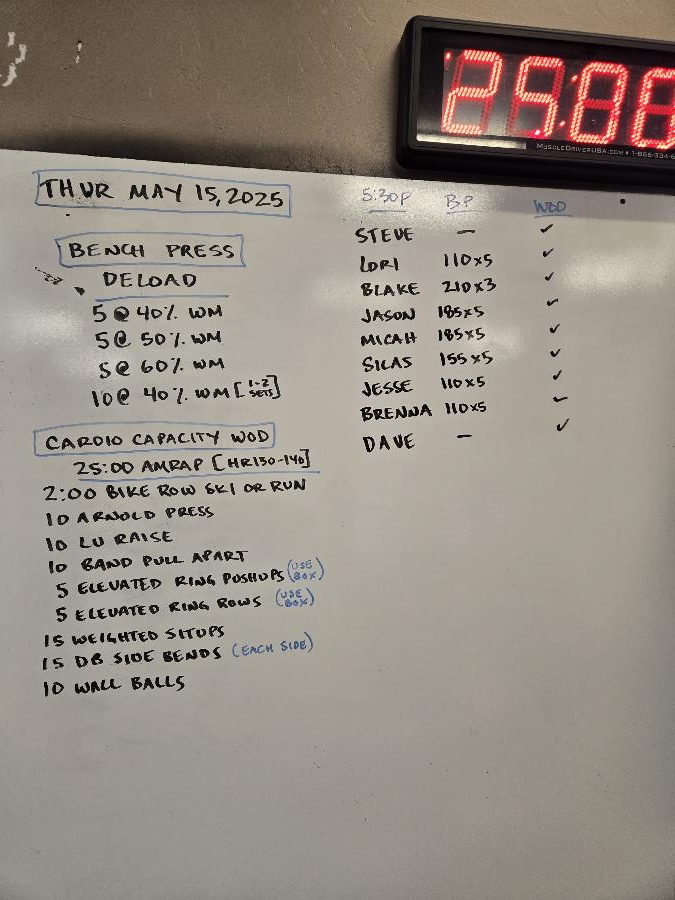 25:00
MUSCLEDRIVERUSA.COM • 1-866-334-6
THUR MAY 15, 2025
BENCH PRESS
DELOAD
5 @ 40% WM
5 @ 50% WM
5 @ 60% WM
10 @ 40% WM [1-2 SETS]
CARDIO CAPACITY WOD
25:00 AMRAP [HR130-140]
2:00 BIKE ROW SKI OR RUN
10 ARNOLD PRESS
10 LU RAISE
10 BAND PULL APART
5 ELEVATED RING PUSHUPS (USE BOX)
5 ELEVATED RING ROWS (USE BOX)
15 WEIGHTED SITUPS
15 DB SIDE BENDS (EACH SIDE)
10 WALL BALLS
5:30P BP WOD
STEVE — ✓
LORI 110x5 ✓
BLAKE 210x3 ✓
JASON 185x5 ✓
MICAH 185x5 ✓
SILAS 155x5 ✓
JESSE 110x5 ✓
BRENNA 110x5 ✓
DAVE — ✓